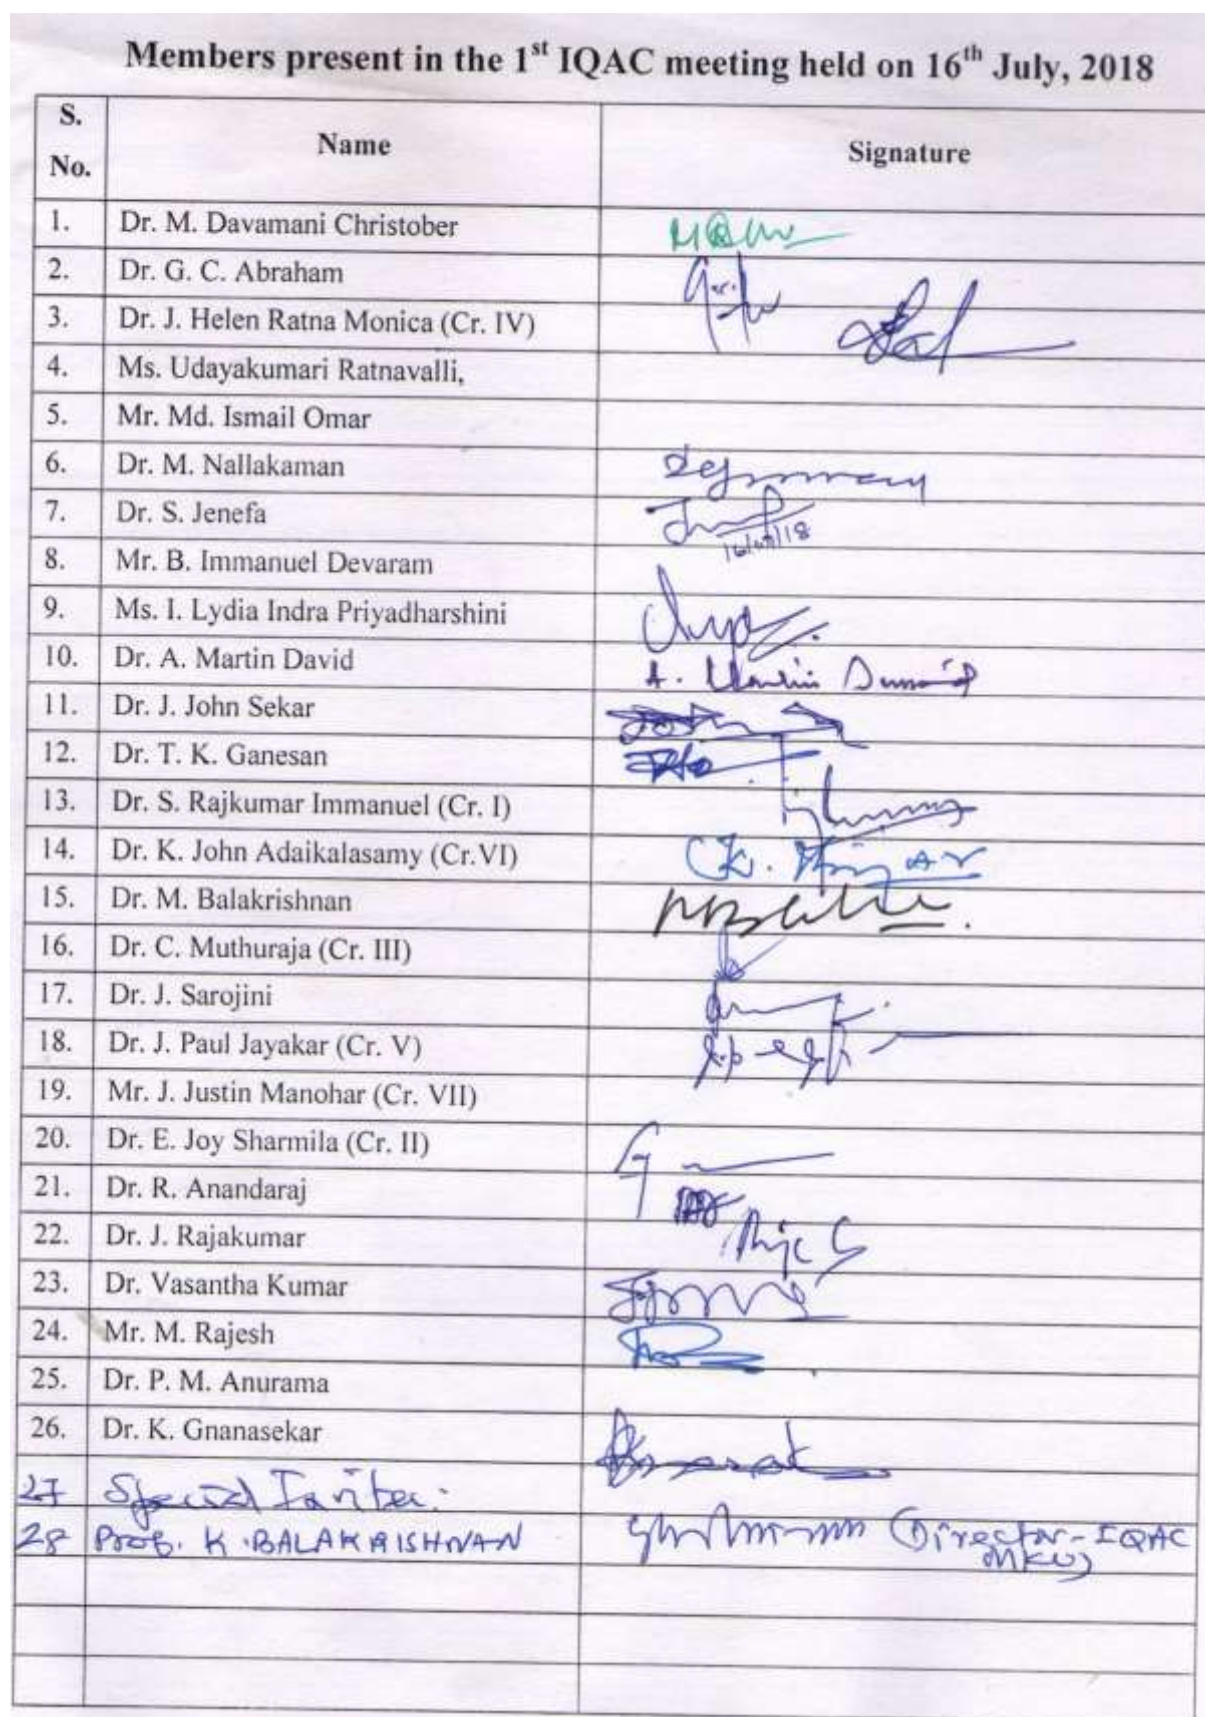 Members present in the 1st IQAC meeting held on 16th July, 2018
S. No. Name Signature
1. Dr. M. Davamani Christober
2. Dr. G. C. Abraham
3. Dr. J. Helen Ratna Monica (Cr. IV)
4. Ms. Udayakumari Ratnavalli,
5. Mr. Md. Ismail Omar
6. Dr. M. Nallakaman
7. Dr. S. Jenefa
16/07/18
8. Mr. B. Immanuel Devaram
9. Ms. I. Lydia Indra Priyadharshini
10. Dr. A. Martin David
11. Dr. J. John Sekar
12. Dr. T. K. Ganesan
13. Dr. S. Rajkumar Immanuel (Cr. I)
14. Dr. K. John Adaikalasamy (Cr.VI)
15. Dr. M. Balakrishnan
16. Dr. C. Muthuraja (Cr. III)
17. Dr. J. Sarojini
18. Dr. J. Paul Jayakar (Cr. V)
19. Mr. J. Justin Manohar (Cr. VII)
20. Dr. E. Joy Sharmila (Cr. II)
21. Dr. R. Anandaraj
22. Dr. J. Rajakumar
23. Dr. Vasantha Kumar
24. Mr. M. Rajesh
25. Dr. P. M. Anurama
26. Dr. K. Gnanasekar
27 Special Invitee:
28 Prof. K. BALAKRISHNAN (Director-IQAC
MKU)